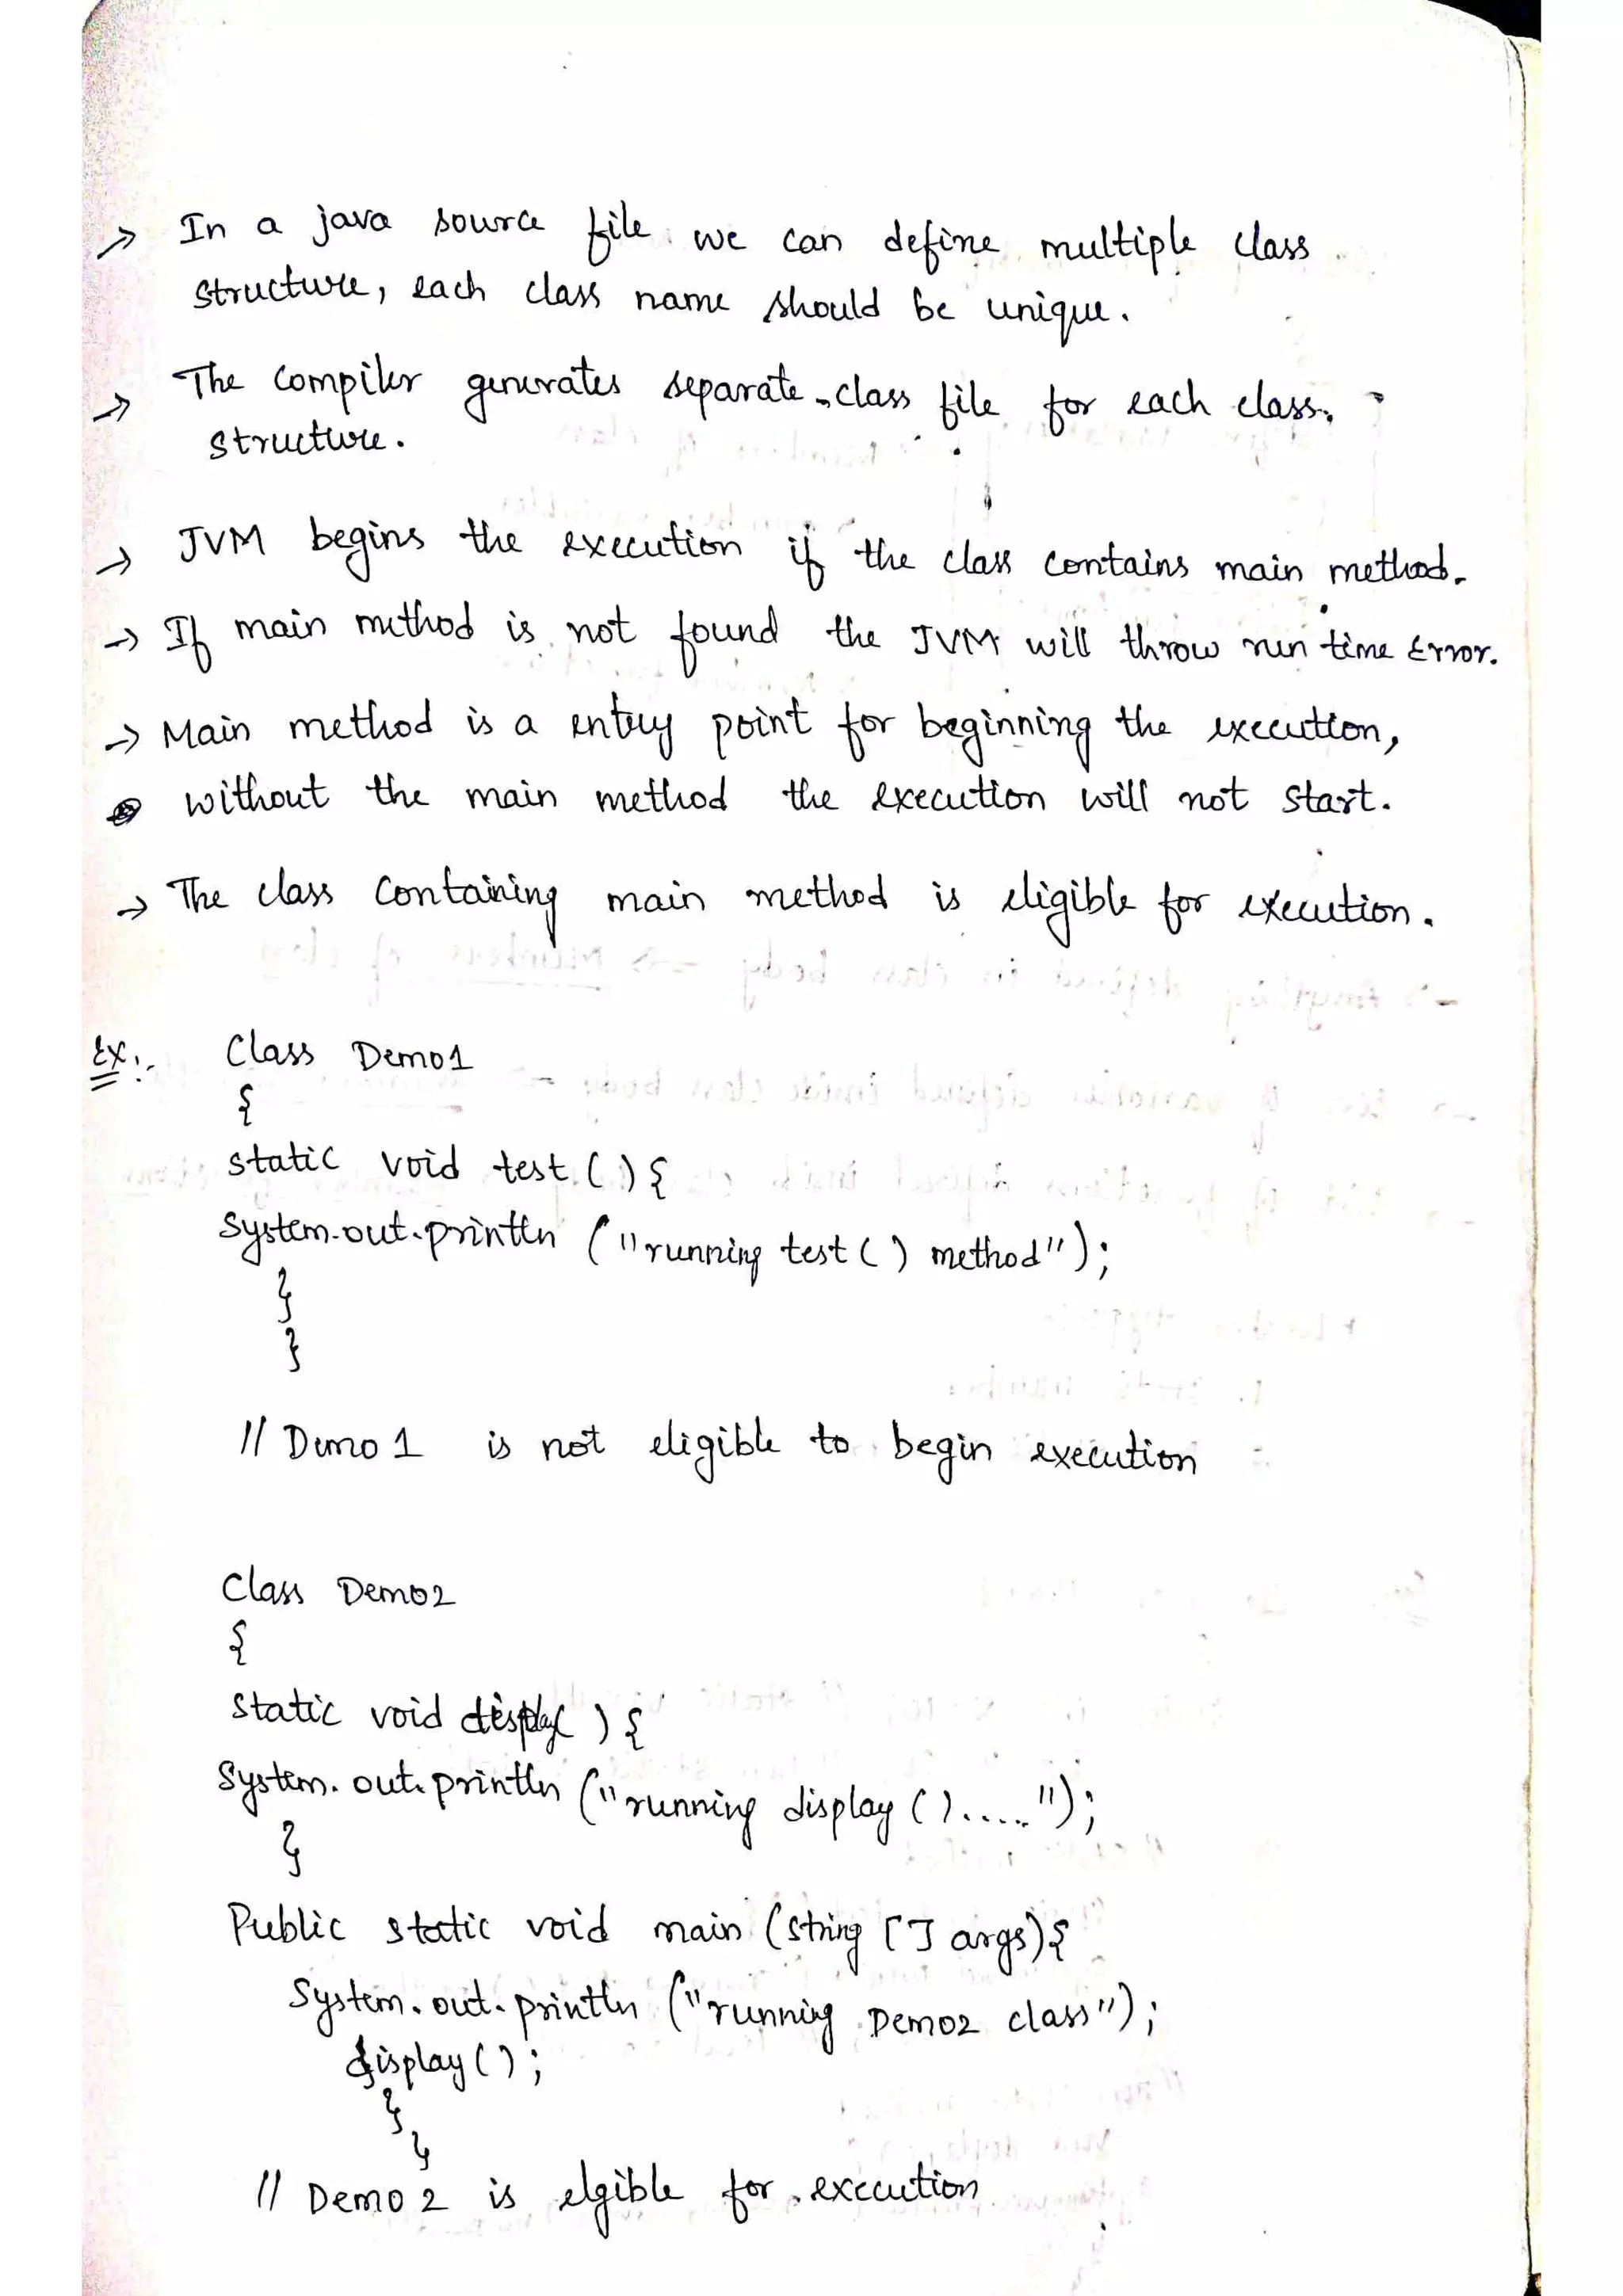 → In a java source file we can define multiple class
structure, each class name should be unique.
→ The Compiler generates separate .class file for each class.
structure.
→ JVM begins the execution if the class contains main method.
→ If main method is not found the JVM will throw run time Error.
→ Main method is a entry point for beginning the execution,
without the main method the execution will not start.
→ The class Containing main method is eligible for execution.
Ex:- Class Demo1
{
static void test () {
System.out.println ("running test () method");
}
}
// Demo 1 is not eligible to begin execution
Class Demo2
{
Static void display( ) {
System. out. println ("running display ()..... ");
}
Public static void main (string [] args){
System. out. println ("running Demo2 class");
display();
}
}
// Demo 2 is elgible for execution